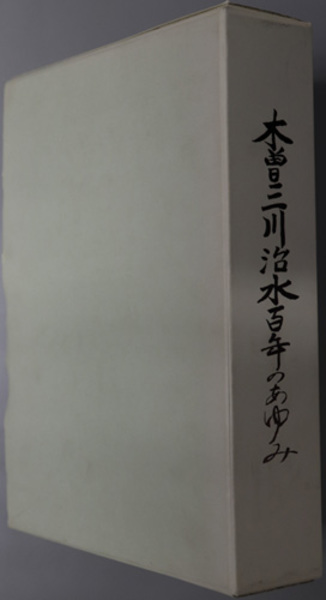 木曽三川治水百年のあゆみ